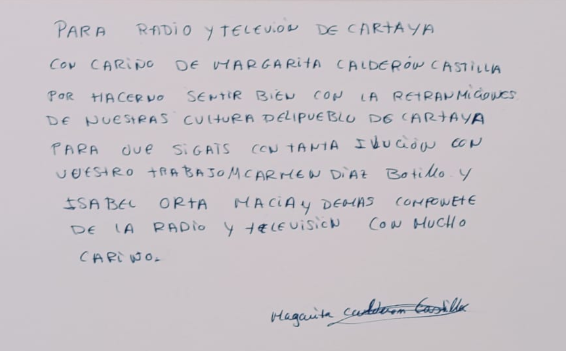 PARA RADIO Y TELEVIÓN DE CARTAYA
CON CARIÑO DE MARGARITA CALDERÓN CASTILLA
POR HACERNO SENTIR BIEN CON LA RETRANMICIONES
DE NUESTRAS CULTURA DELIPUEBLO DE CARTAYA
PARA QUE SIGAIS CON TANTA ILUCIÓN CON
VUESTRO TRABAJO M CARMEN DIAZ Botillo Y
ISABEL ORTA MACIA Y DEMAS COMPONETE
DE LA RADIO Y TELEVISION CON MUCHO
CARIÑO.
Magarita Calderon Castilla